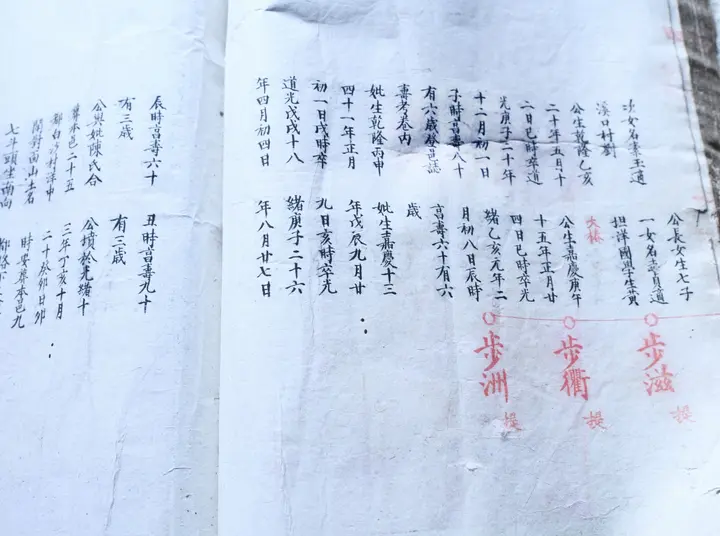 次女名喜玉適
溪口村劉
公生乾隆乙亥
二十年五月十
二日巳時卒道
光庚子二十年
十二月初一日
子時享壽八十
有六歲登邑誌
壽考卷內
妣生乾隆丙申
四十一年正月
初一日戌時卒
道光戊戌十八
年四月初四日
公長女生七子
一女名普員適
担洋國學生黃
公生嘉慶庚午
十五年正月廿
四日巳時卒光
緒乙亥元年二
月初八日辰時
享壽六十有六
歲
妣生嘉慶十三
年戊辰九月廿
九日亥時卒光
緒庚子二十六
年八月廿七日
步滋
提
步衢
提
步洲
提
辰時享壽六十
有三歲
公與妣陳氏合
葬本邑二十五
都白村洋中
開對面山土名
七斗頭坐南向
丑時享壽九十
有三歲
公墳於光緒十
三年丁亥十月
二十癸卯日卯
時安葬本邑九